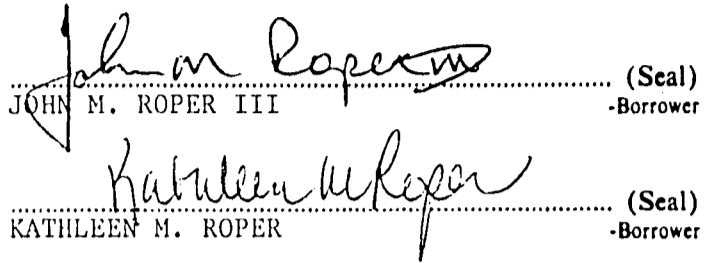 John M Roper III
(Seal)
JOHN M. ROPER III -Borrower
Kathleen M Roper
(Seal)
KATHLEEN M. ROPER -Borrower